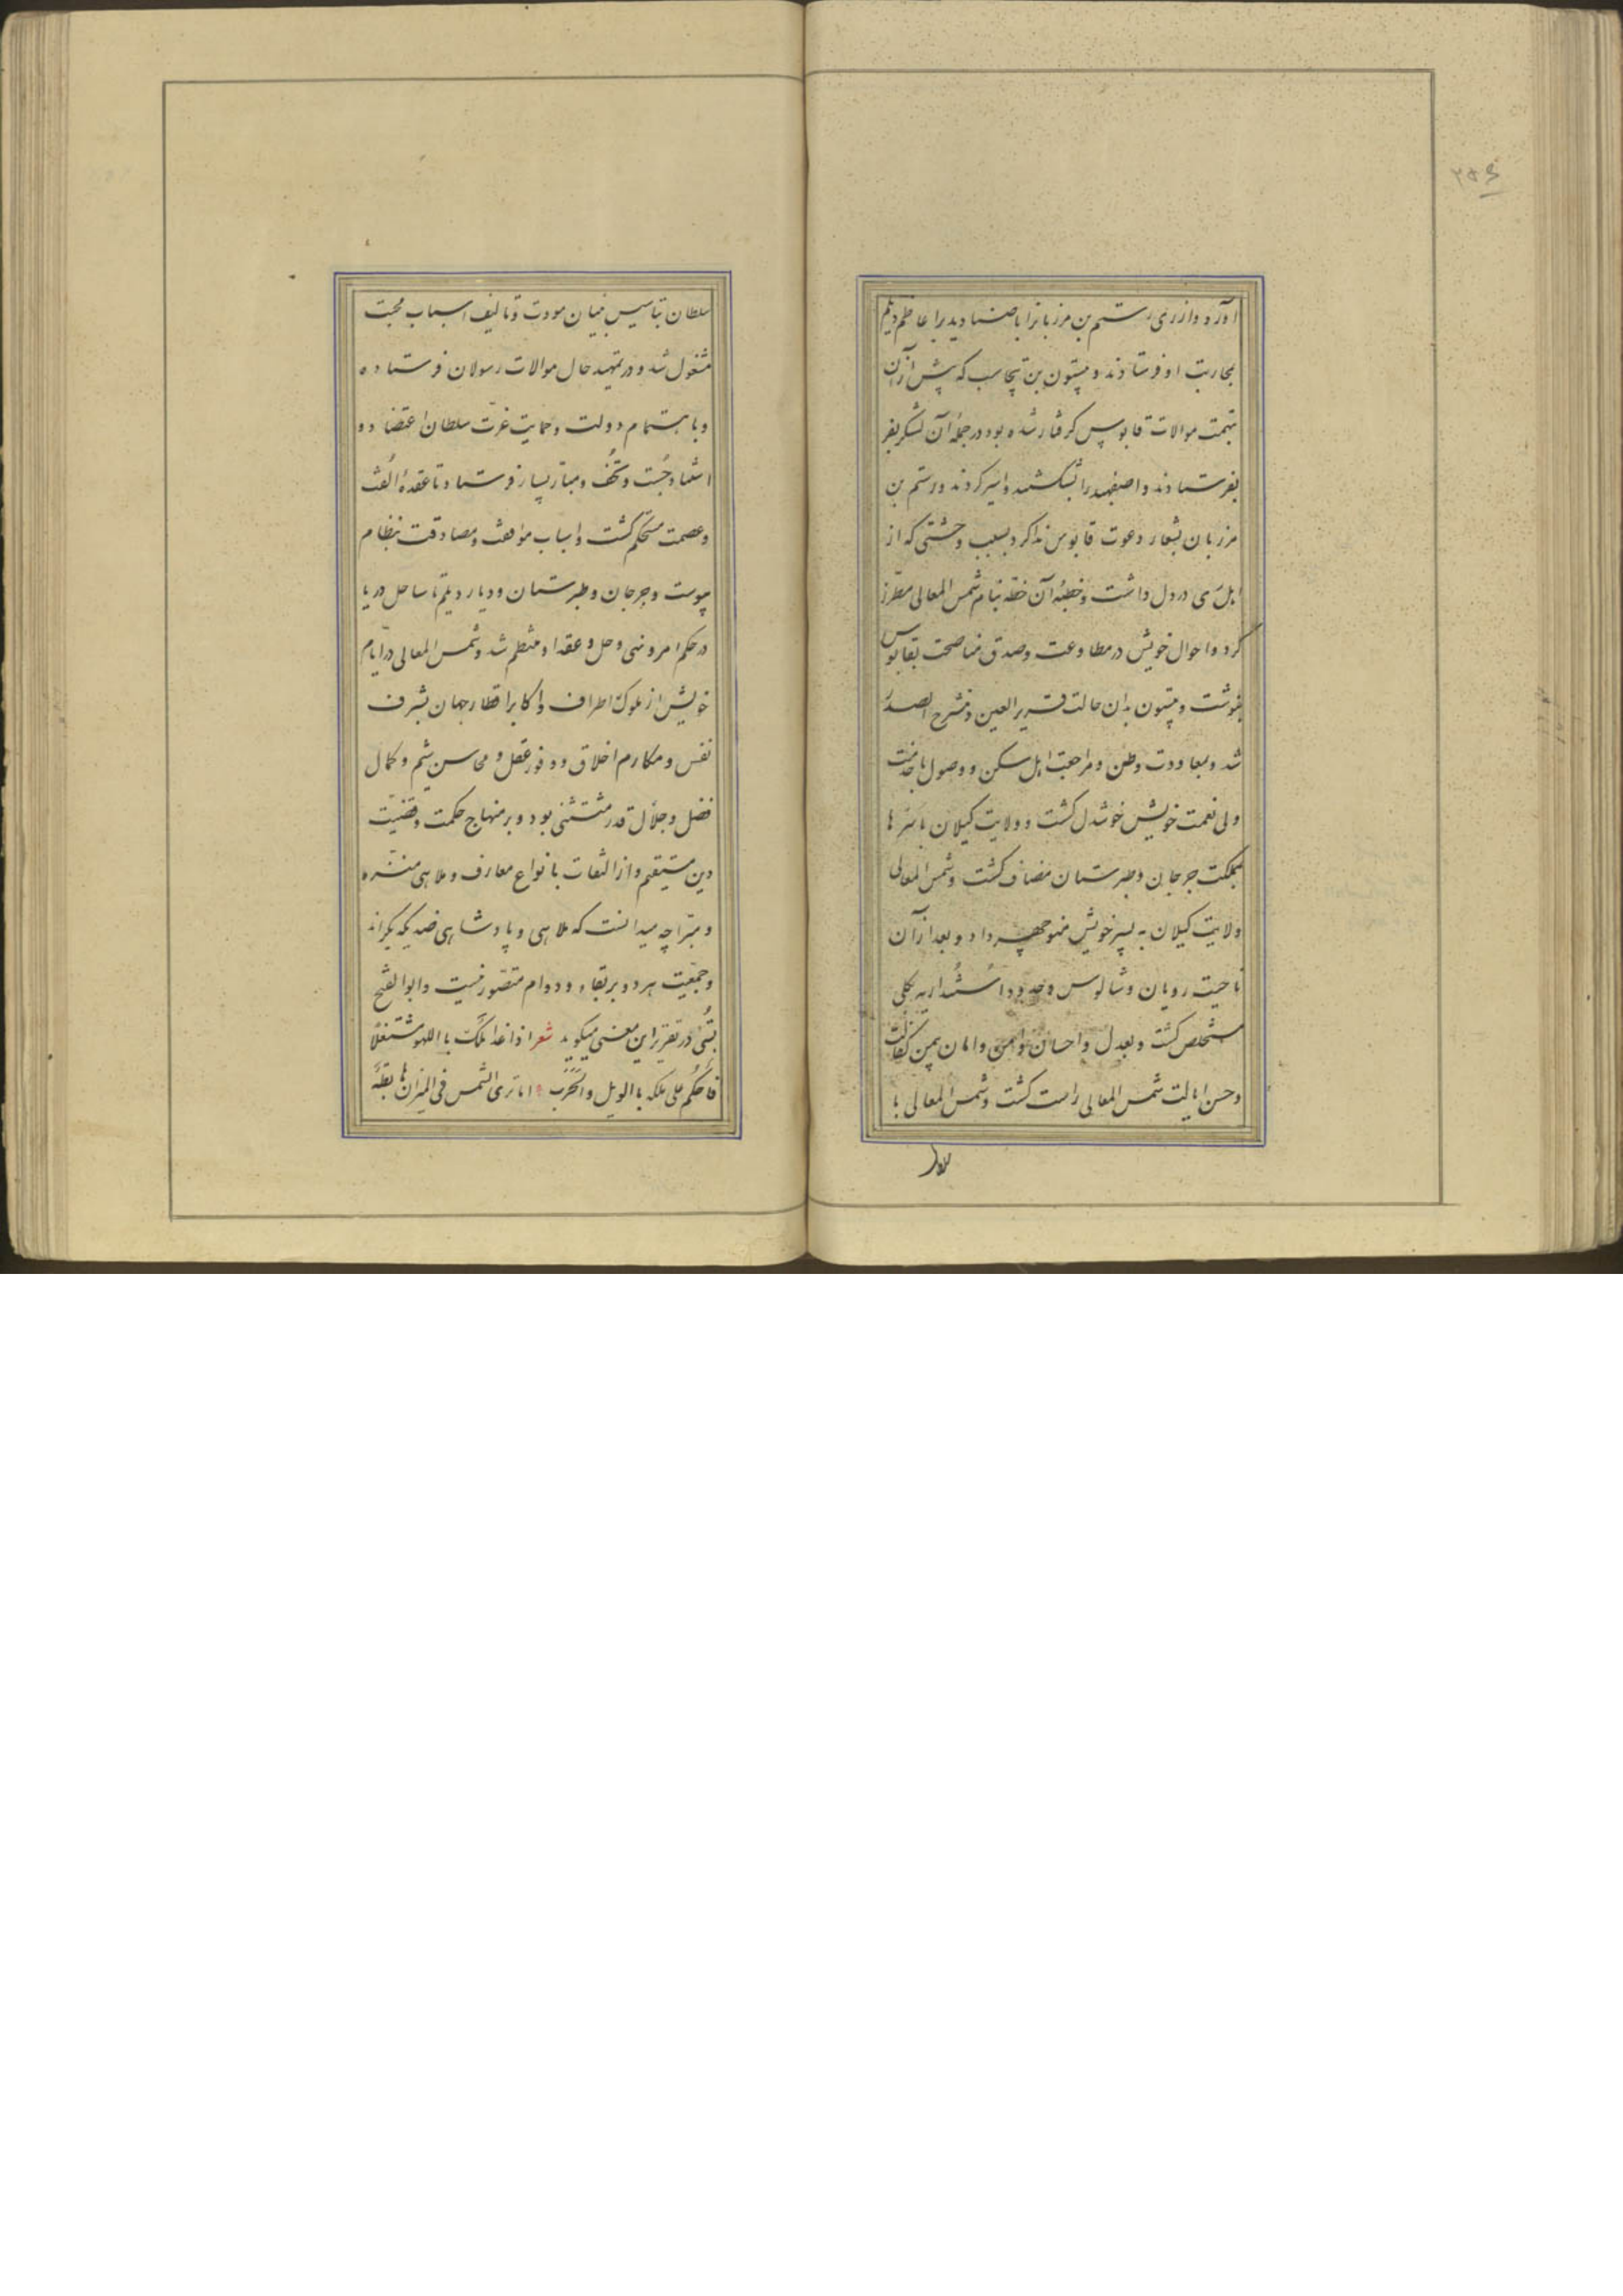 آورد و از ری رستم بن مرزبانرا با صنادید برا عاظم دیلم
بمحاربت او فرستادند و بیستون بن تیجاسب که پیش ازآن
بتهمت موالات قابوس کرفتار شده بود درجملهٔ آن لشکر بفر
بفرستادند و اصفهبد را بشکستند و اسیر کردند و رستم بن
مرزبان بشعار دعوت قابوس ندا کرد بسبب وحشتی که از
اهل ری در دل داشت و خطبهٔ آن خطّه بنام شمس المعالی مطرّز
کرد و احوال خویش در مطاوعت وصدق مناصحت بقابوس
بنوشت و بیستون بدان حالت قریر العین و منشرح الصدر
شد و بمعاودت وطن و مراجعت اهل سکن و وصول با خدمت
ولی نعمت خویش خوشدل کشت و ولایت کیلان باسرها
بمملکت جرجان و طبرستان مضاف کشت و شمس المعالی
ولایت کیلان به پسر خویش منوچهر داد و بعد ازآن
ناحیت رویان و شالوس و حدود اُستُنداریه بکلّی
مستخلص کشت و بعدل و احسان و امن و امان بیمن کفالت
و حسن ایالت شمس المعالی راست کشت و شمس المعالی با
سلطان
سلطان بتأسیس بنیان مودت و تألیف اسباب محبت
مشغول شد و در تمهید حال موالات رسولان فرستاده
و باهتمام دولت و حمایت عزت سلطان اعتضاد و
استناد جُست و تُحَف و مبارّ بسیار فرستاد تا عقدهٔ اُلفت
و عصمت مستحکم کشت و اسباب موافقت و مصادقت بنظام
پیوست و جرجان و طبرستان و دیار دیلم تا ساحل دریا
در حکم امر و نهی و حل و عقد او منتظم شد و شمس المعالی در ایّام
خویش از ملوک اطراف و اکابر اقطار جهان بشرف
نفس و مکارم اخلاق و وفور عقل و محاسن شیم و کمال
فضل و جلال قدر مستثنی بود و بر منهاج حکمت و قضیّت
دین مستقیم و از التفات بانواع معازف و ملاهی منزّه
و مبرّا چه میدانست که ملاهی و پادشاهی ضد یکدیکراند
و جمعیّت هردو بر بقاء و دوام متصوّر نیست و ابوالفتح
بُستی در تقریر این معنی میکوید شعر اذا غدا ملکٌ باللهو مشتغلاً
فاحکُم علی ملکه بالویل والحَرَب اما تری الشمس فی المیزان هابطةً